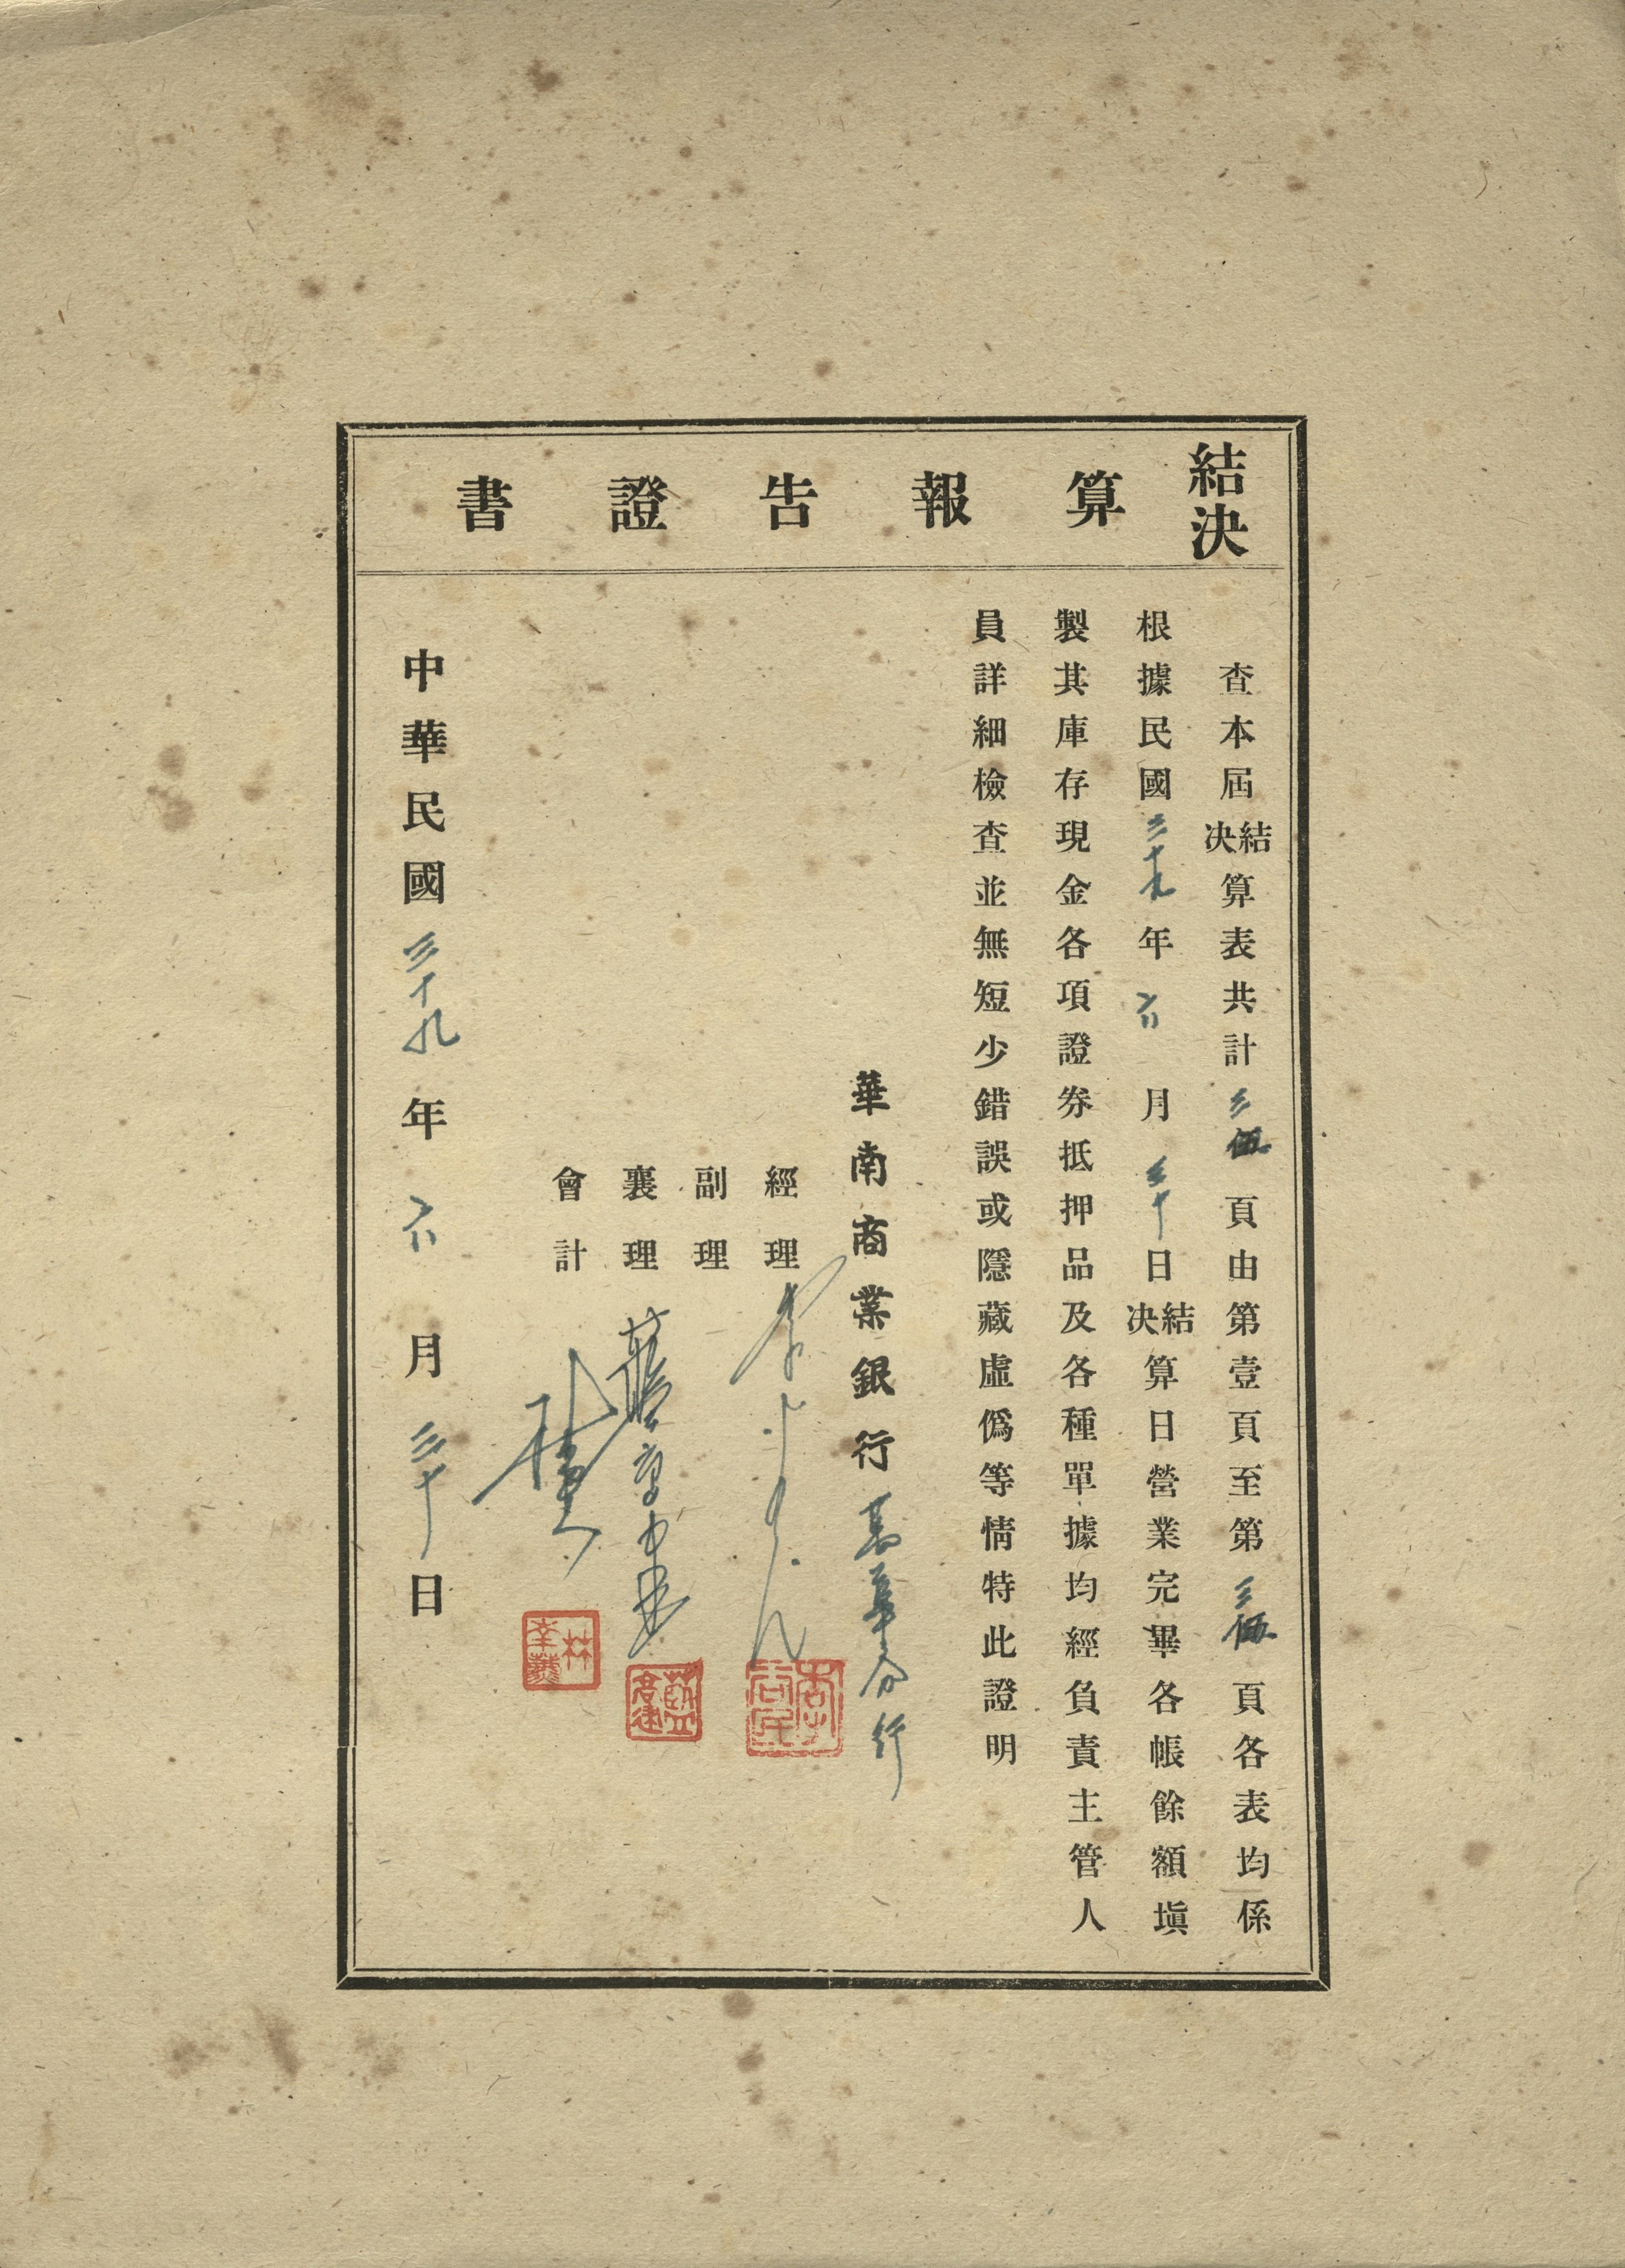 結決算報告證書
查本屆結決算表共計三伍頁由第壹頁至第三伍頁各表均係
根據民國三十九年六月三十日結決算日營業完畢各帳餘額塡
製其庫存現金各項證券抵押品及各種單據均經負責主管人
員詳細檢查並無短少錯誤或隱藏虛僞等情特此證明
華南商業銀行萬華分行
經理
副理
襄理
會計
中華民國三十九年六月三十日